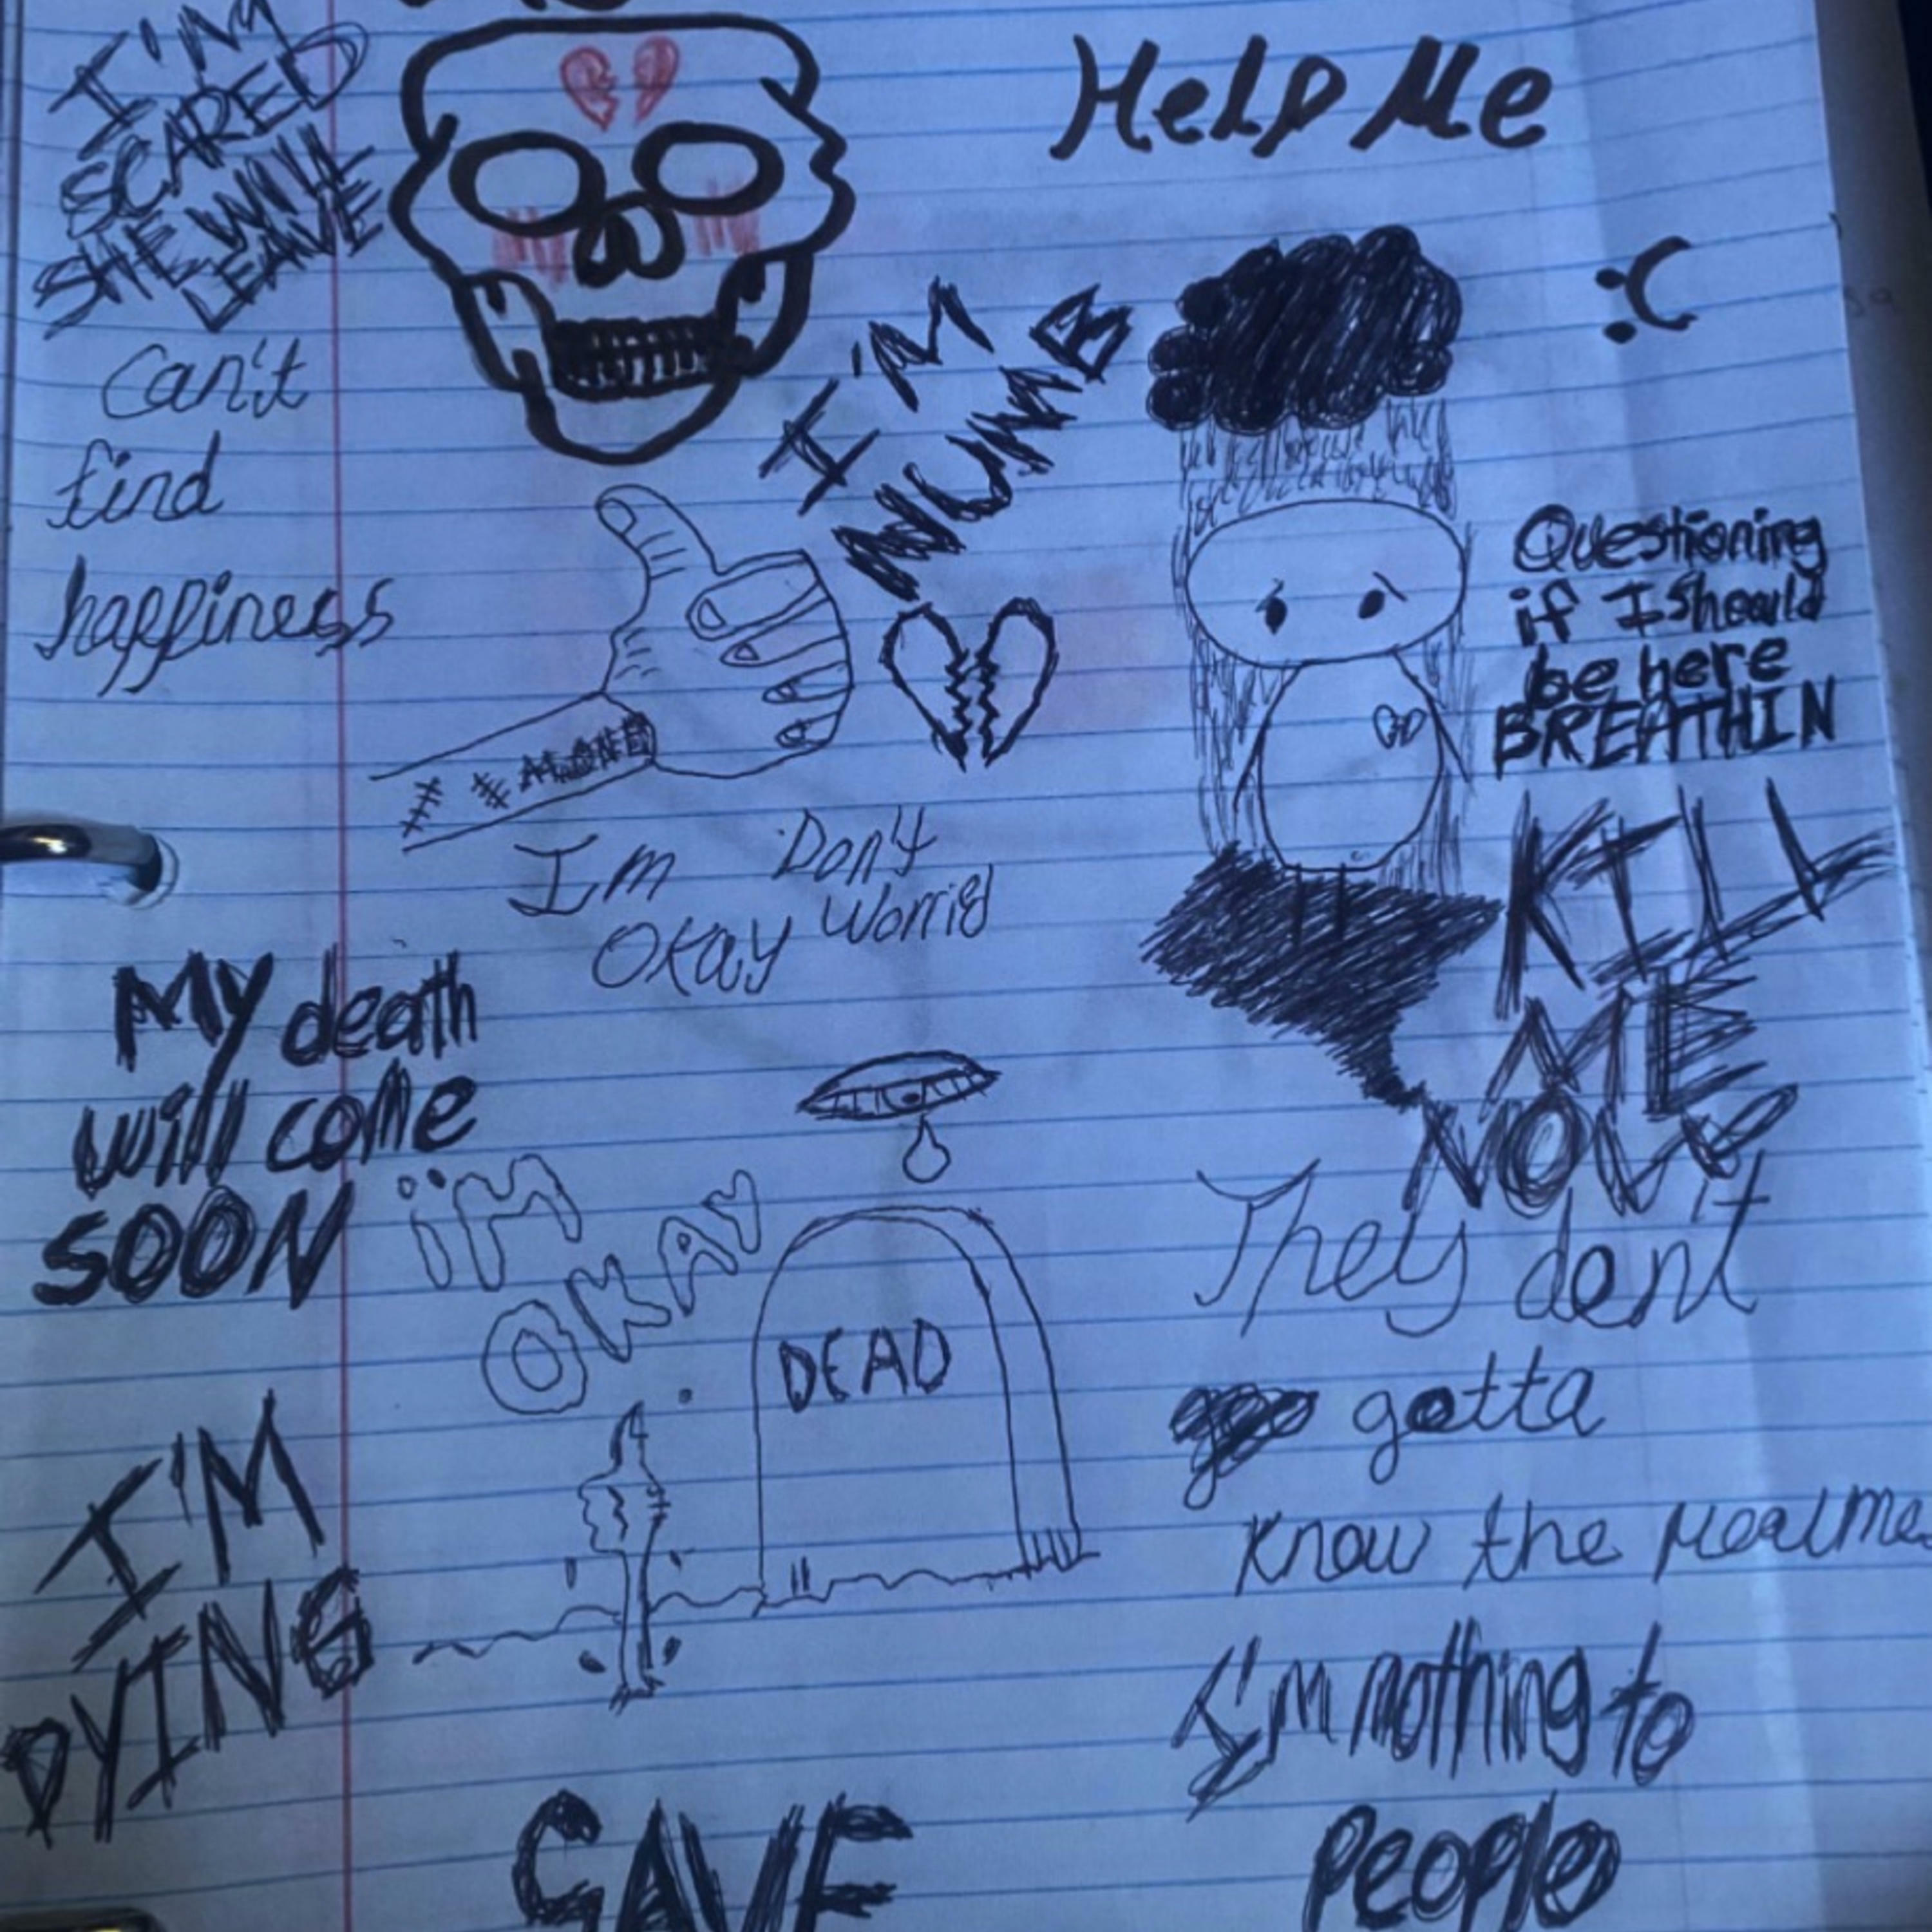 I'M
SCARED
SHE WILL
LEAVE
Help Me
:(
Can't
find
happiness
I'M
NUMB
Questioning
if I should
be here
BREATHIN
KILL
ME
NOW
Im Don't
Okay Worrid
My death
will come
SOON
I'M
OKAY.
DEAD
They don't
gotta
know the real me
I'M
DYING
I'm nothing to
people
SAVE